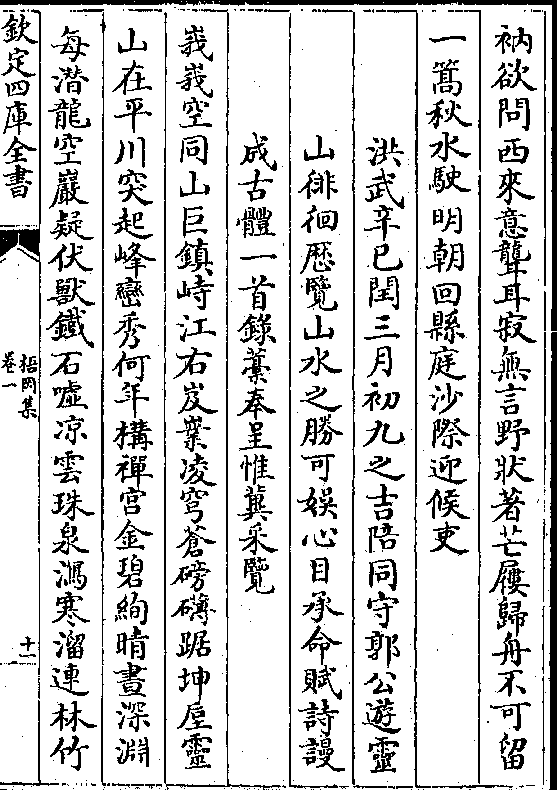 衲欲問西來意聾耳寂無言野狀著芒屨歸舟不可留
一篙秋水駛明朝回縣庭沙際迎候吏
洪武辛巳閏三月初九之吉陪同守郭公遊靈
山徘徊歷覽山水之勝可娛心目承命賦詩謾
成古體一首錄藁奉呈惟冀采覽
峩峩空同山巨鎮峙江右岌嶪凌穹蒼磅礴踞坤垕靈
山在平川突起峰巒秀何年構禪宮金碧絢晴晝深淵
每潛龍空巖疑伏獸鐵石噓凉雲珠泉瀉寒溜連林竹
欽定四庫全書
梧岡集
卷一
十一